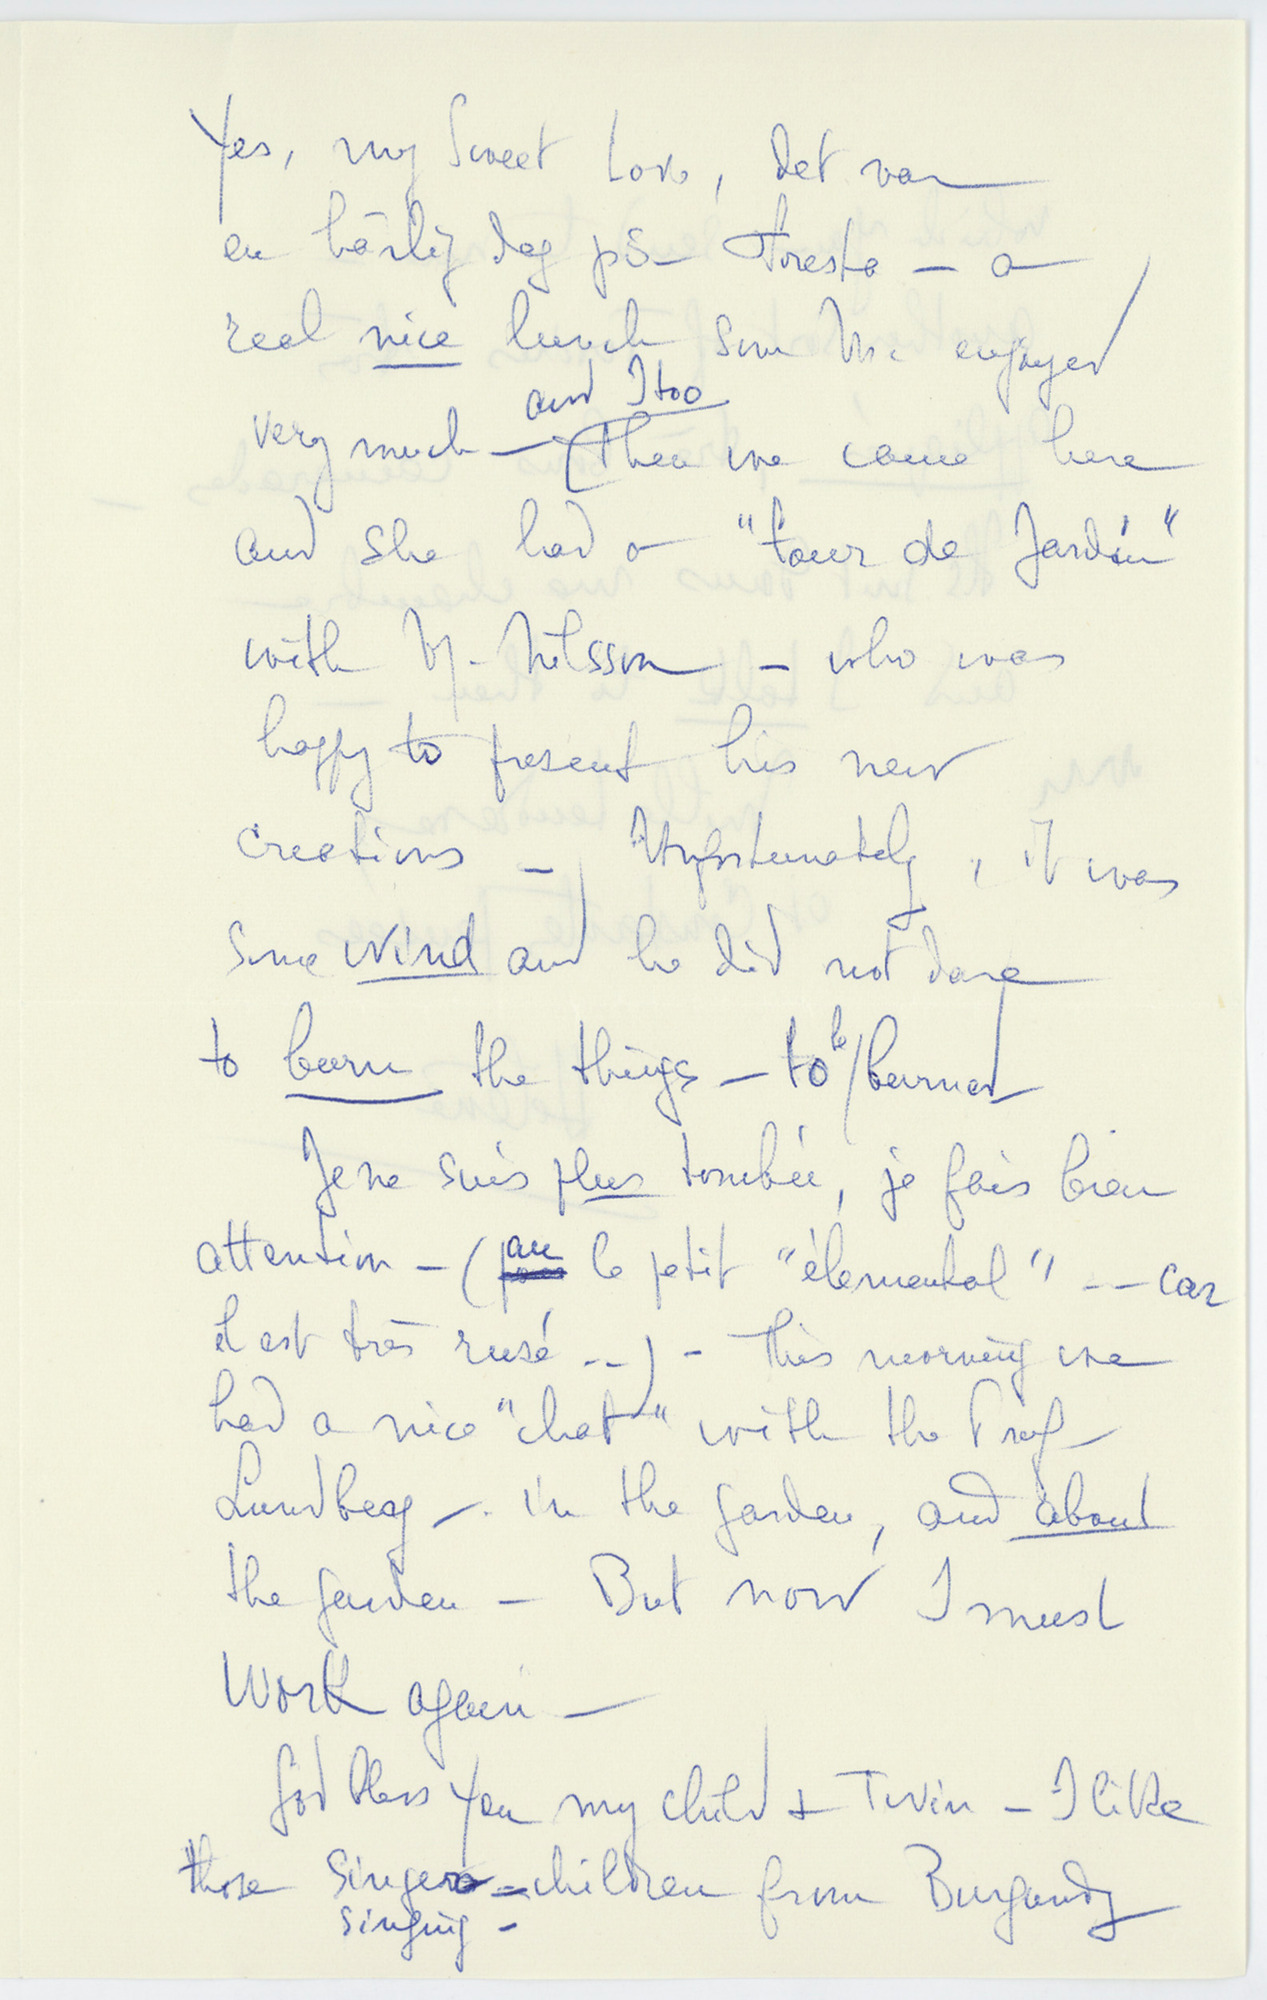 Yes, my Sweet Love, det var
en härlig dag på Foresta – a
real nice lunch som Mr enjoyed
and I too
very much – (Then we came here
and she had a "tour de Jardin"
with M. Nilsson – who was
happy to present his new
creations –) Unfortunately, it was
some wind and he did not dare
to burn the things – to be/burned
Je ne suis plus tombée, je fais bien
attention – (au le petit "élemental" -- car
il est très rusé ..) – This morning we
had a nice "chat" with the Prof
Lundberg –. in the garden, and about
the garden – But now I must
Work again –
God bless You my child + Twin – I like
those singers – children from Burgundy
singing –